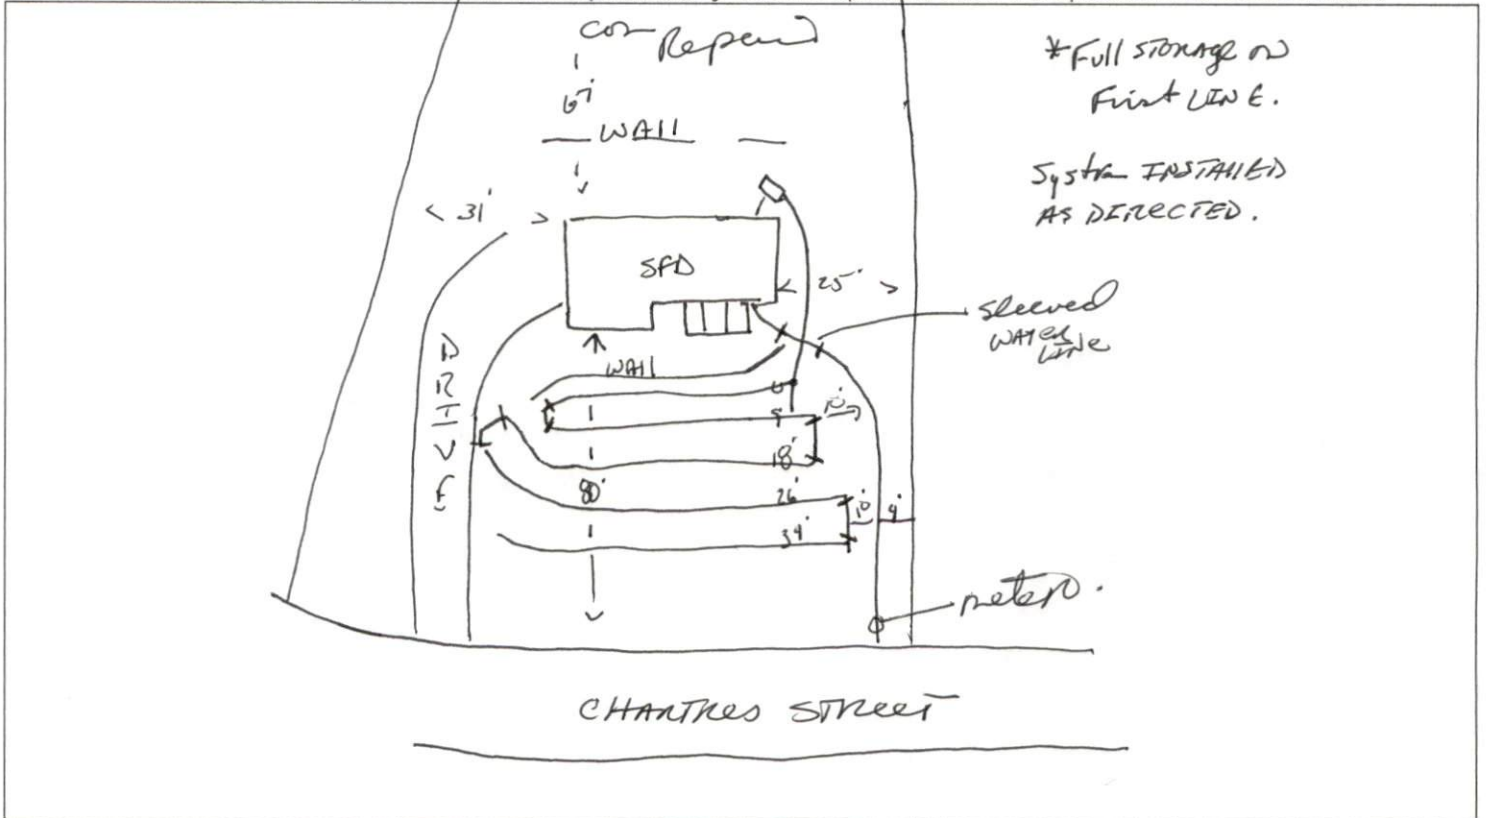 Repair
*Full STORAGE ON
First LINE.
67'
WALL
System INSTALLED
AS DIRECTED.
< 31' >
SFD
< 25' >
sleeved
WATER
LINE
WALL
DRIVE
0
9
10'
18'
80'
26'
10'
9'
34'
meter.
CHARTRES STREET